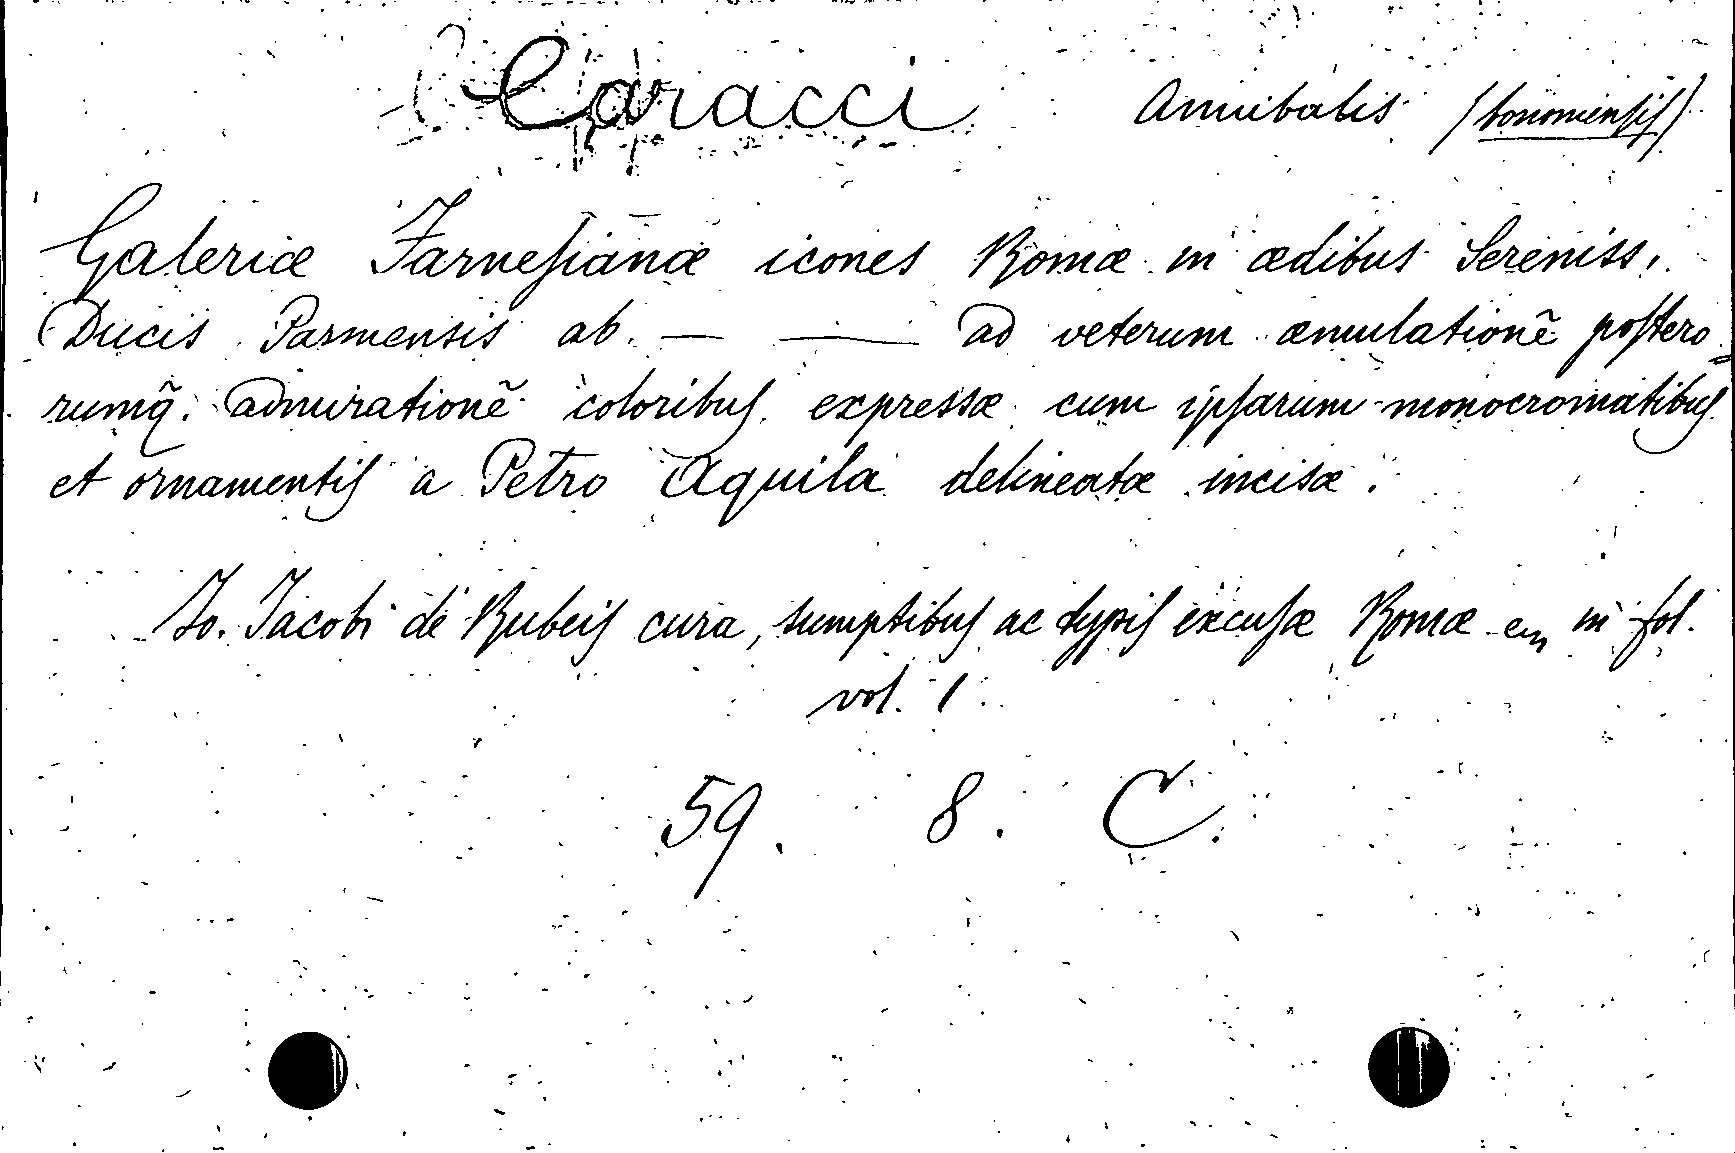 Caracci Annibalis (bononiensis)
Galeriæ Farnesianæ icones Romæ in ædibus Sereniss.
Ducis Parmensis ab. — — ad veterum æmulationẽ postero=
rumq̃. admirationẽ coloribus expressæ cum ipsarum monocromatibus
et ornamentis a Petro Aquila delineatæ incisæ.
Jo. Jacobi de Rubeis cura, sumptibus ac typis excusæ Romæ in fol.
vol. 1
59. 8. C.